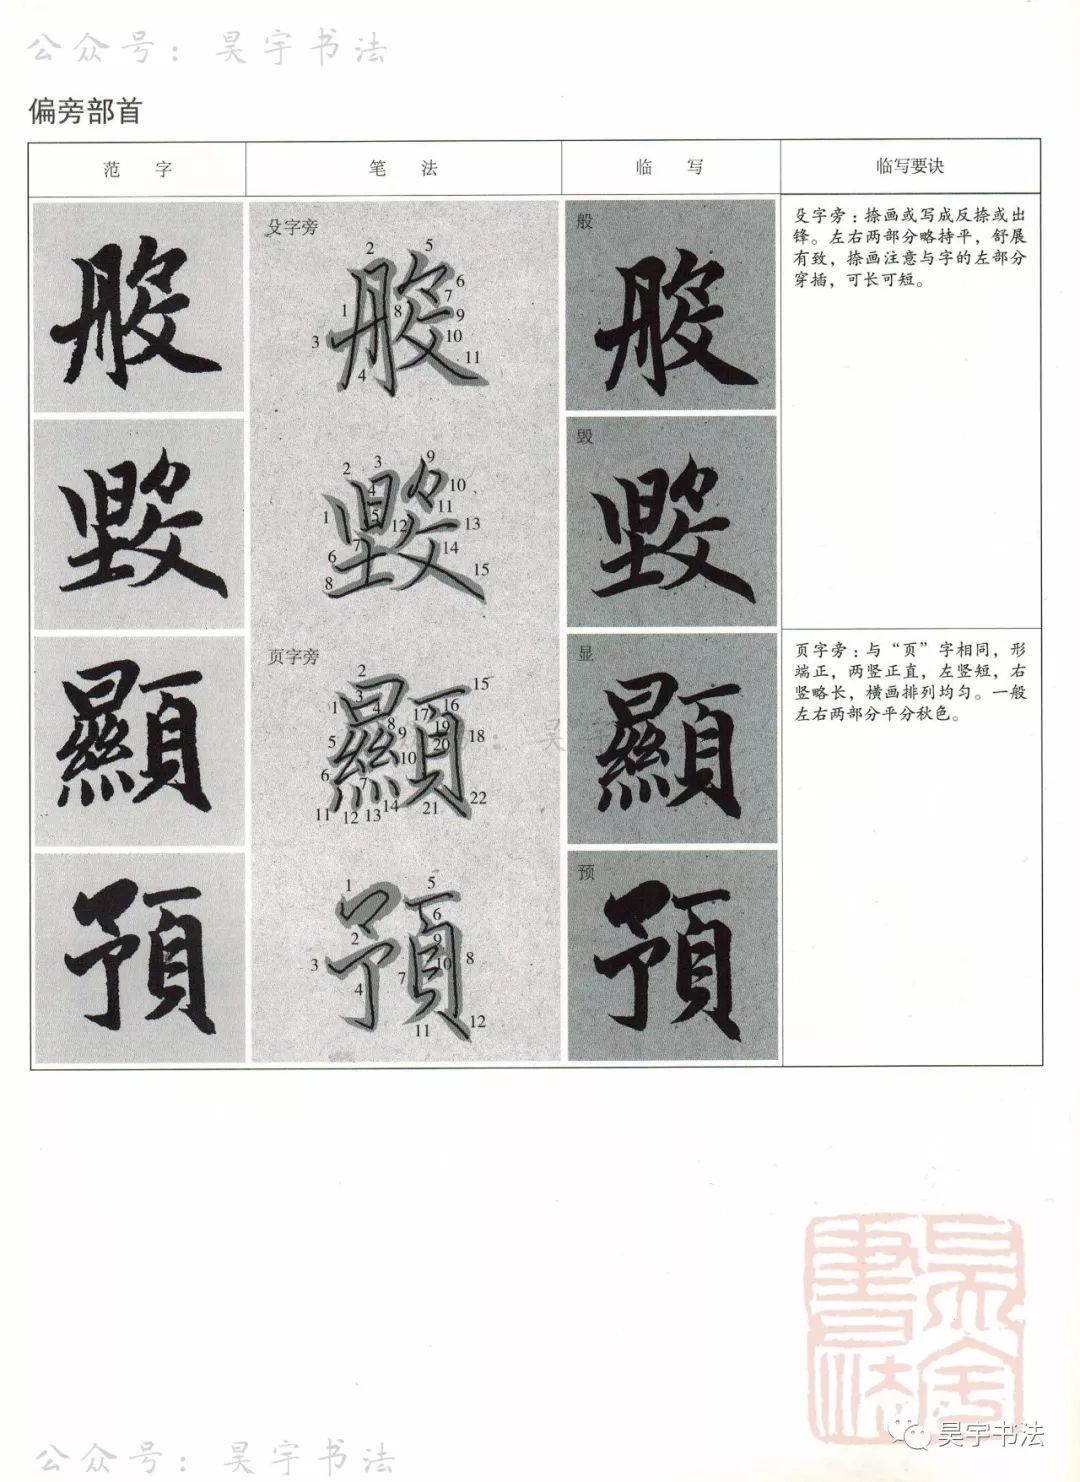 公众号：昊宇书法
偏旁部首
范 字 笔 法 临 写 临写要诀
殳字旁
般
殳字旁：捺画或写成反捺或出
锋。左右两部分略持平，舒展
有致，捺画注意与字的左部分
穿插，可长可短。
般 2 5 6 7 1 8 9 3 10 11 4 般
毁
毁 2 3 9 4 10 11 1 5 12 13 7 14 6 15 8 毁
页字旁
显
页字旁：与“页”字相同，形
端正，两竖正直，左竖短，右
竖略长，横画排列均匀。一般
左右两部分平分秋色。
顯 2 15 3 16 1 4 17 8 19 9 18 5 20 10 6 7 14 22 11 12 13 21 顯
：昊
预
預 1 5 6 2 9 3 10 8 7 4 12 11 預
昊宇書法
昊宇书法
公众号：昊宇书法